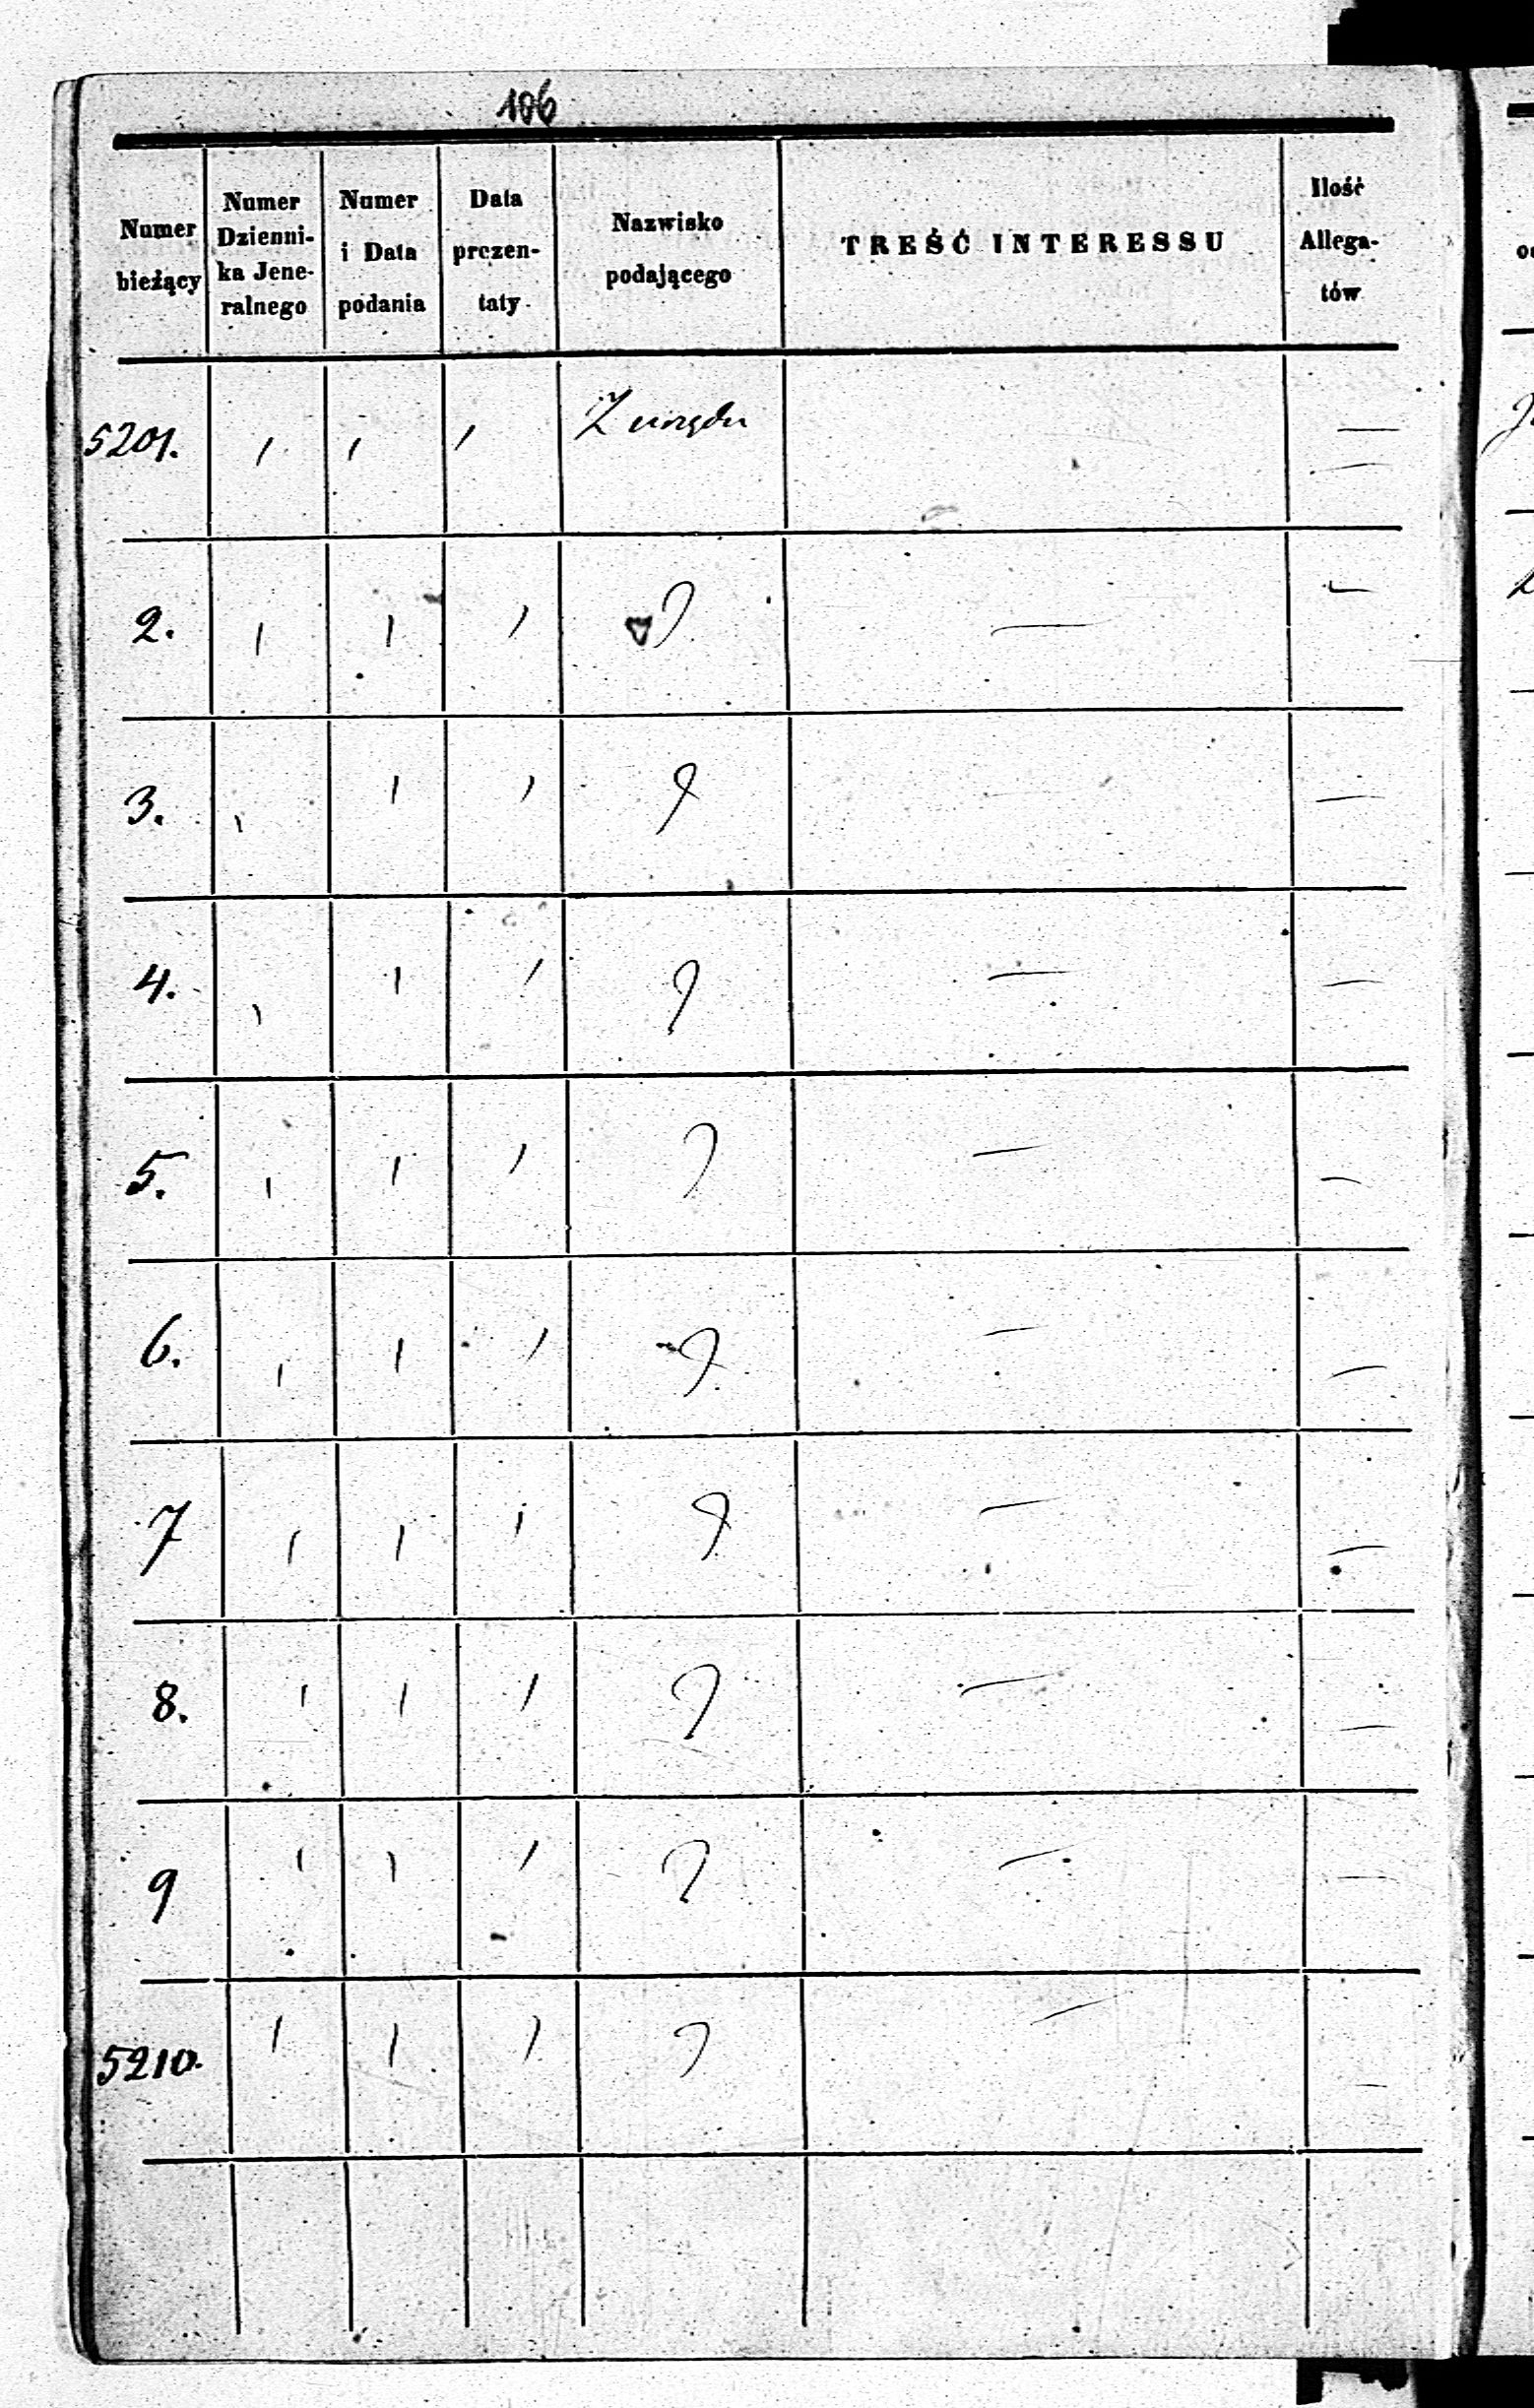 106
Numer bieżący
Numer Dzienni-ka Jene-ralnego
Numer i Data podania
Data prezen-taty
Nazwisko podającego
TREŚĆ INTERESSU
Ilość Allega-tów
5201. Z urzędu
2.
3.
4.
5.
6.
7
8.
9
5210.